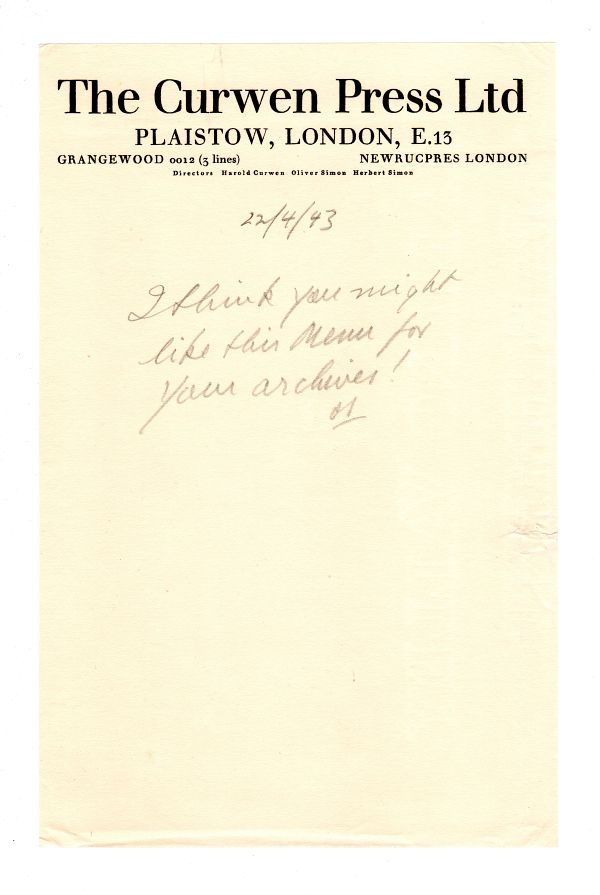 The Curwen Press Ltd
PLAISTOW, LONDON, E.13
GRANGEWOOD 0012 (3 lines) NEWRUCPRES LONDON
Directors Harold Curwen Oliver Simon Herbert Simon
22/4/43
I think you might
like this Menu for
your archives!
OS